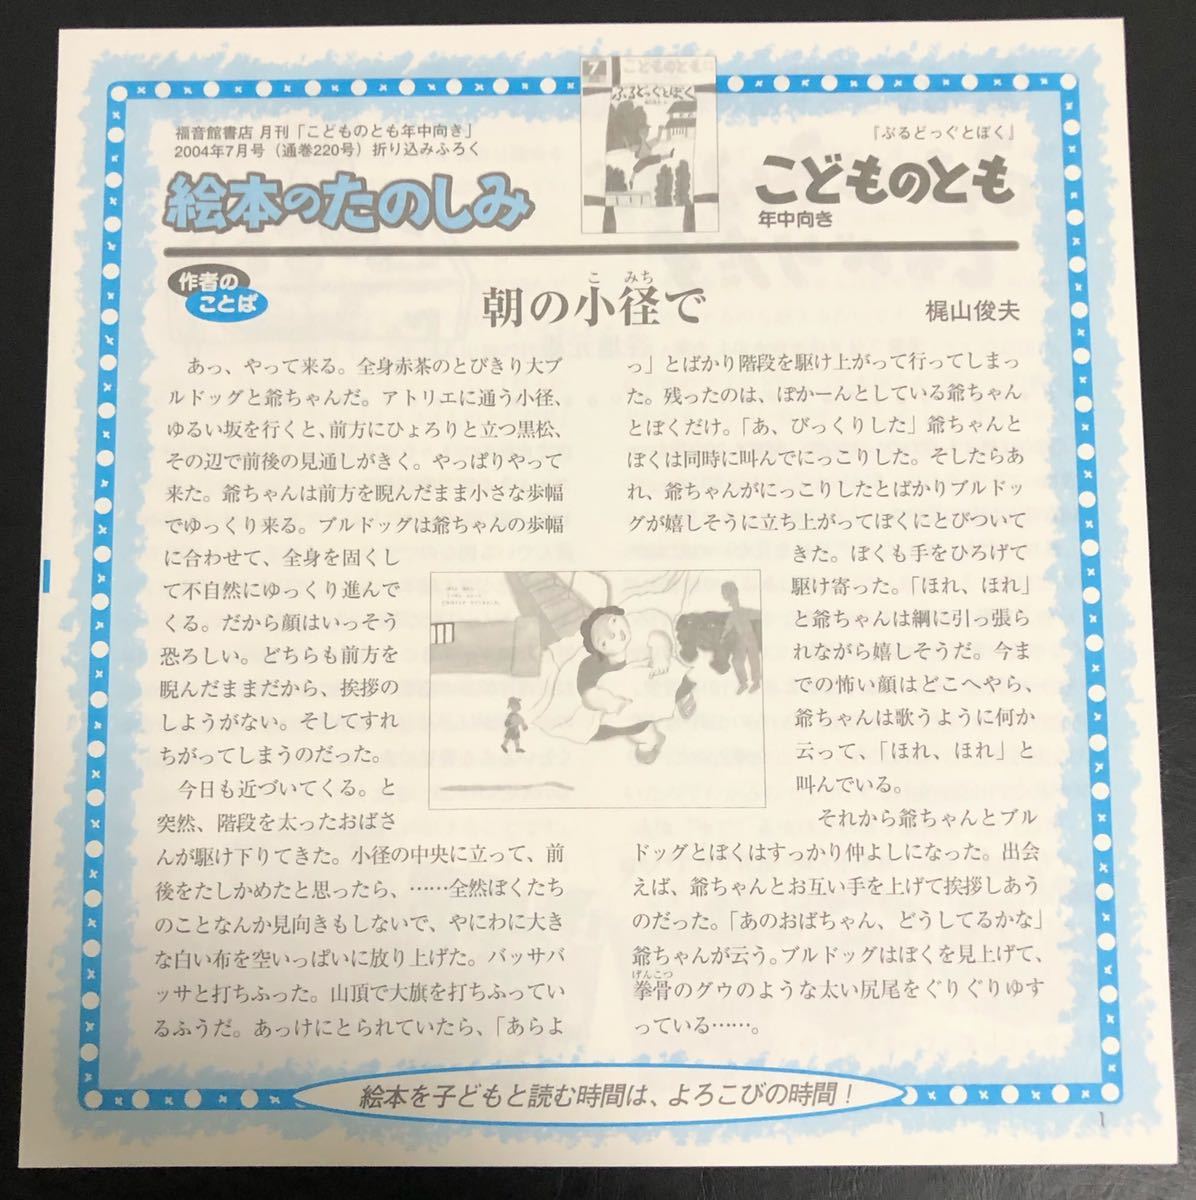 福音館書店 月刊「こどものとも年中向き」
2004年7月号（通巻220号）折り込みふろく
絵本のたのしみ
7
こどものとも
ぶるどっぐとぼく
『ぶるどっぐとぼく』
こどものとも
年中向き
作者の
ことば
朝の小径で
こ みち
梶山俊夫
あっ、やって来る。全身赤茶のとびきり大ブ
ルドッグと爺ちゃんだ。アトリエに通う小径、
ゆるい坂を行くと、前方にひょろりと立つ黒松、
その辺で前後の見通しがきく。やっぱりやって
来た。爺ちゃんは前方を睨んだまま小さな歩幅
でゆっくり来る。ブルドッグは爺ちゃんの歩幅
に合わせて、全身を固くし
て不自然にゆっくり進んで
くる。だから顔はいっそう
恐ろしい。どちらも前方を
睨んだままだから、挨拶の
しようがない。そしてすれ
ちがってしまうのだった。
今日も近づいてくる。と
突然、階段を太ったおばさ
んが駆け下りてきた。小径の中央に立って、前
後をたしかめたと思ったら、……全然ぼくたち
のことなんか見向きもしないで、やにわに大き
な白い布を空いっぱいに放り上げた。バッサバ
ッサと打ちふった。山頂で大旗を打ちふってい
るふうだ。あっけにとられていたら、「あらよ
っ」とばかり階段を駆け上がって行ってしまっ
た。残ったのは、ぽかーんとしている爺ちゃん
とぼくだけ。「あ、びっくりした」爺ちゃんと
ぼくは同時に叫んでにっこりした。そしたらあ
れ、爺ちゃんがにっこりしたとばかりブルドッ
グが嬉しそうに立ち上がってぼくにとびついて
きた。ぼくも手をひろげて
駆け寄った。「ほれ、ほれ」
と爺ちゃんは綱に引っ張ら
れながら嬉しそうだ。今ま
での怖い顔はどこへやら、
爺ちゃんは歌うように何か
云って、「ほれ、ほれ」と
叫んでいる。
それから爺ちゃんとブル
ドッグとぼくはすっかり仲よしになった。出会
えば、爺ちゃんとお互い手を上げて挨拶しあう
のだった。「あのおばちゃん、どうしてるかな」
爺ちゃんが云う。ブルドッグはぼくを見上げて、
げんこつ
拳骨のグウのような太い尻尾をぐりぐりゆす
っている……。
絵本を子どもと読む時間は、よろこびの時間！
1